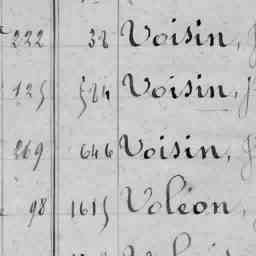 222 38 Voisin,
125 584 Voisin,
269 646 Voisin,
98 1615 Voléon,